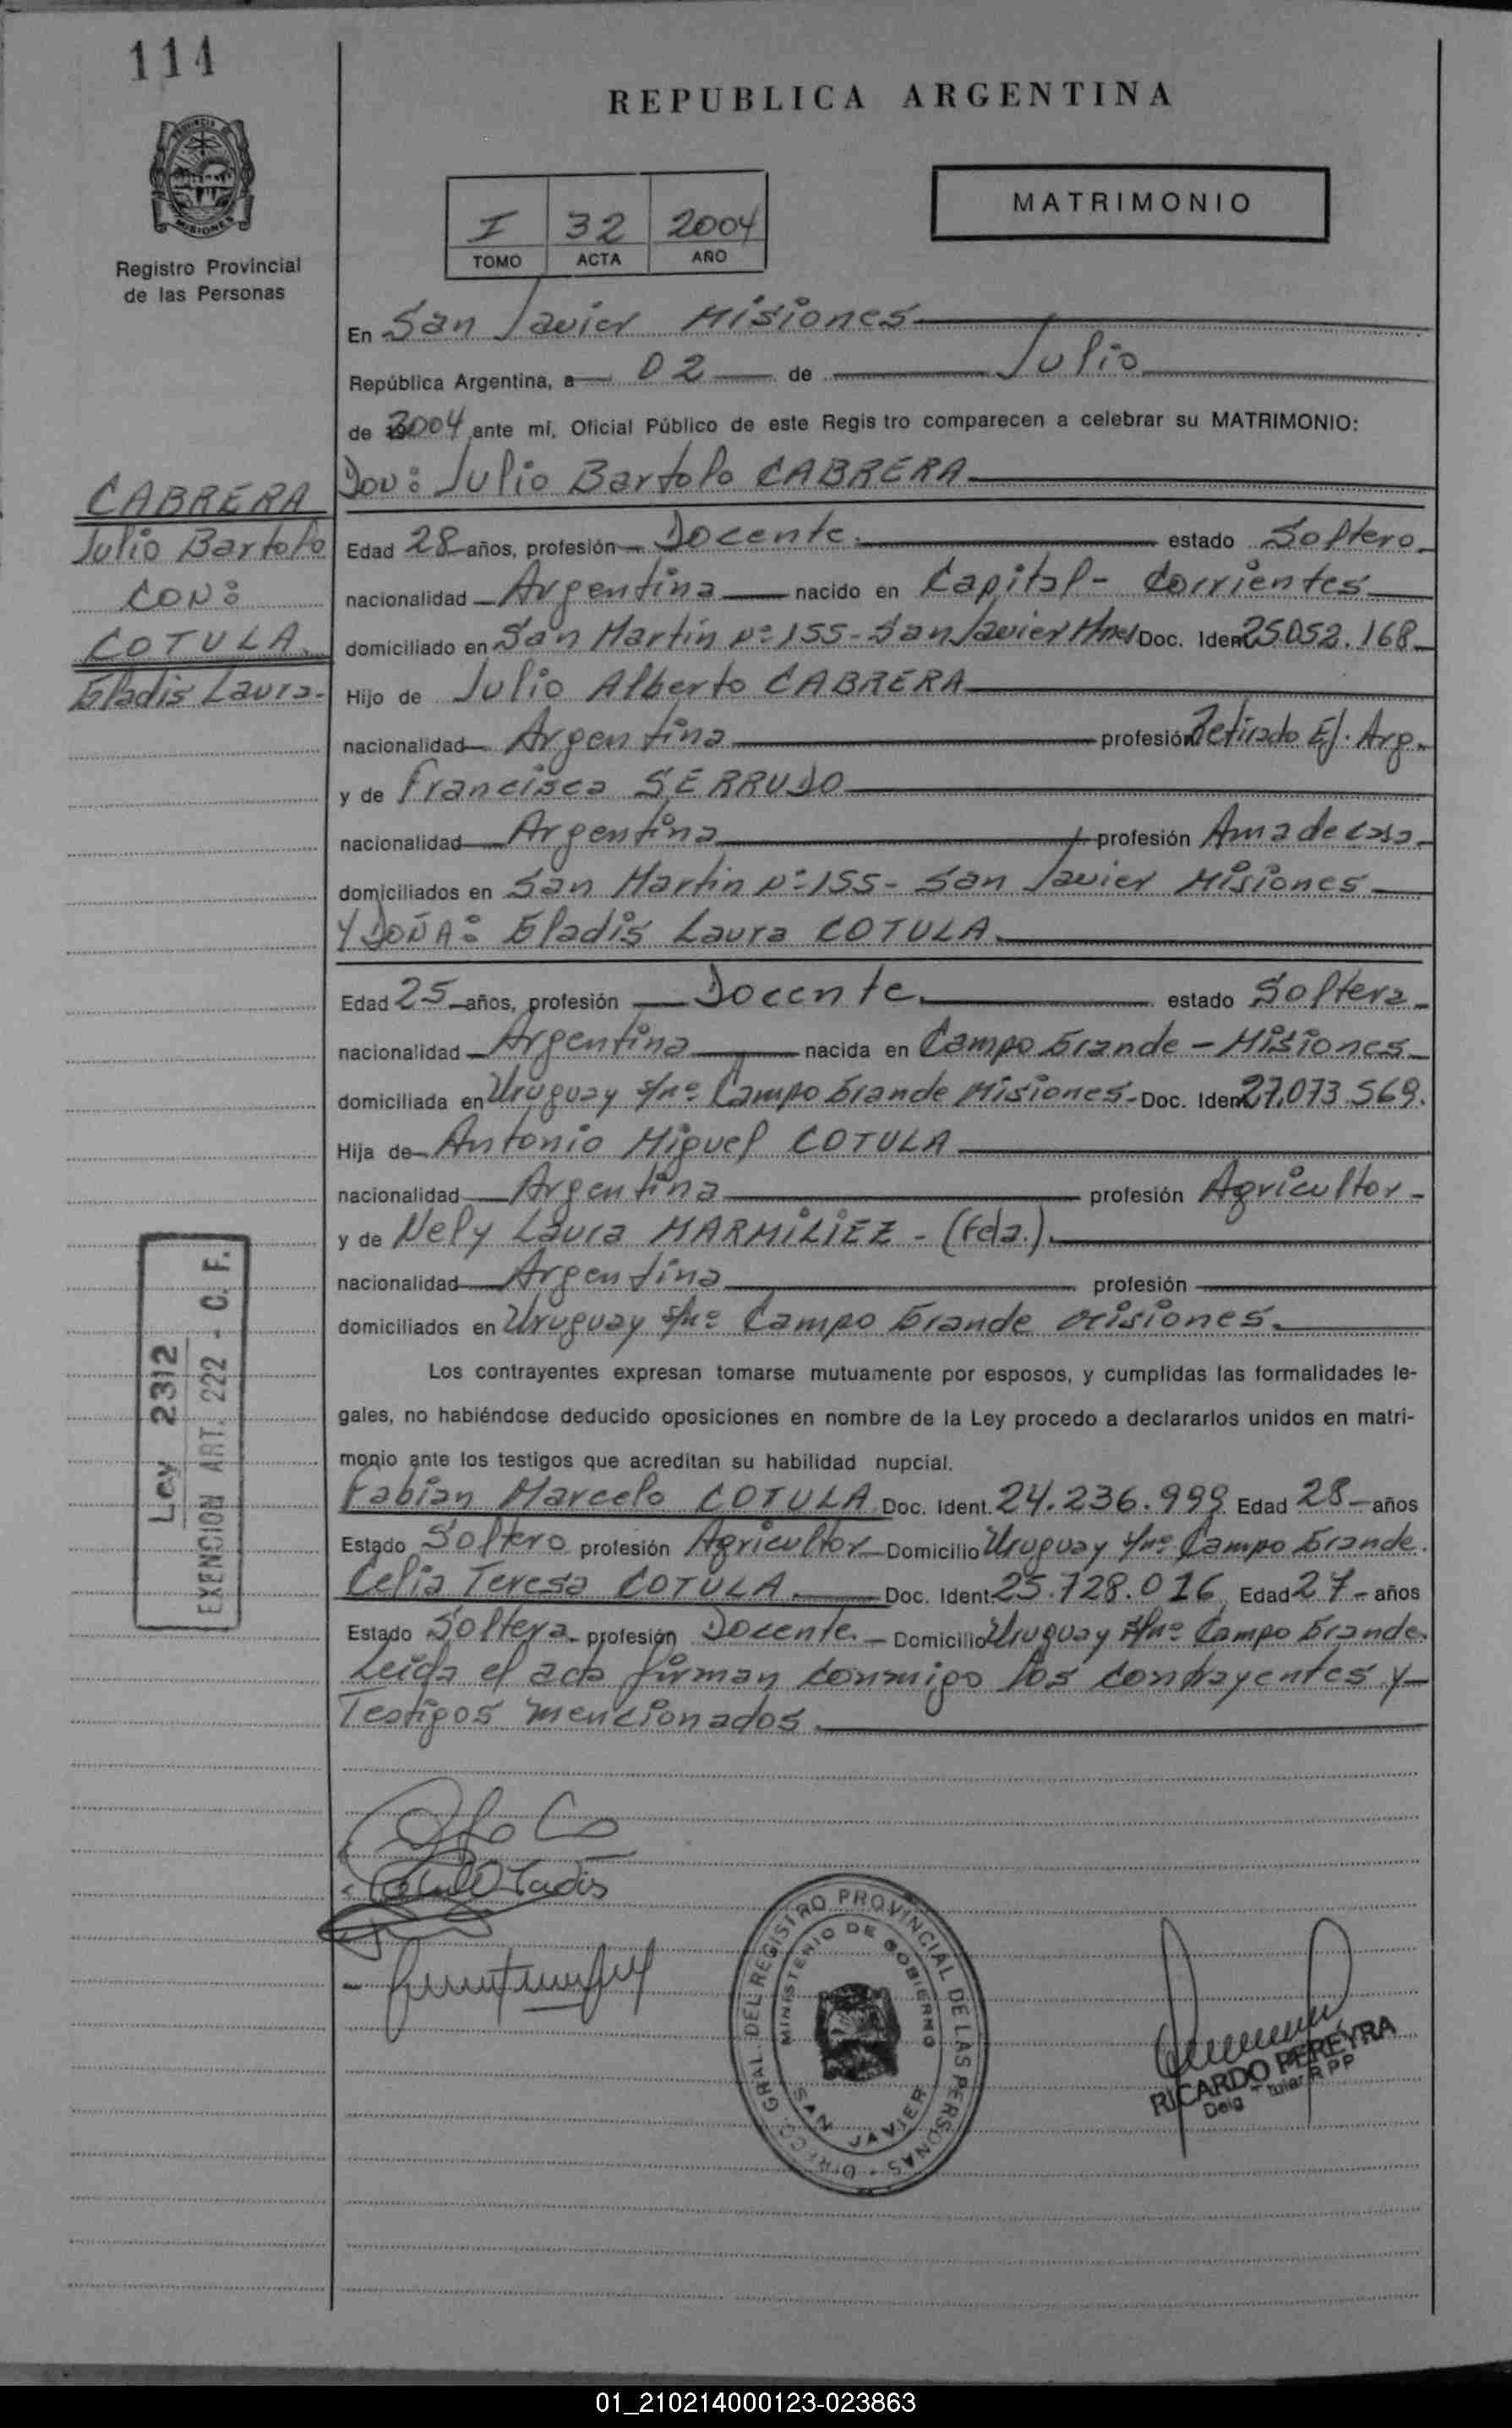 114
REPUBLICA ARGENTINA
MATRIMONIO
I 32 2004
TOMO ACTA AÑO
PROVINCIA DE
MISIONES
Registro Provincial
de las Personas
En San Javier Misiones
República Argentina, a 02 de Julio
de 2004 ante mí, Oficial Público de este Regis tro comparecen a celebrar su MATRIMONIO:
CABRERA
Julio Bartolo
CON:
COTULA
Gladis Laura.
Don: Julio Bartolo CABRERA
Edad 28 años, profesión Docente. estado Soltero
nacionalidad Argentina nacido en Capital - Corrientes
domiciliado en San Martín Nº 155 - San Javier Mnes Doc. Iden 25.052.168
Hijo de Julio Alberto CABRERA
nacionalidad Argentina profesión Retirado Ej. Arg.
y de Francisca SERRUDO
nacionalidad Argentina profesión Ama de casa.
domiciliados en San Martin Nº 155 - San Javier Misiones
Y DOÑA: Gladis Laura COTULA.
Edad 25 años, profesión Docente. estado Soltera
nacionalidad Argentina nacida en Campo Grande - Misiones
domiciliada en Uruguay s/nº Campo Grande Misiones - Doc. Iden 27.073.569.
Hija de Antonio Miguel COTULA
nacionalidad Argentina profesión Agricultor -
y de Nely Laura MARMILIEZ - (Fda.).
nacionalidad Argentina profesión
domiciliados en Uruguay s/nº Campo Grande Misiones.
Los contrayentes expresan tomarse mutuamente por esposos, y cumplidas las formalidades le-
gales, no habiéndose deducido oposiciones en nombre de la Ley procedo a declararlos unidos en matri-
monio ante los testigos que acreditan su habilidad nupcial.
Fabian Marcelo COTULA Doc. Ident. 24.236.999 Edad 28 años
Estado Soltero profesión Agricultor Domicilio Uruguay s/nº Campo Grande.
Celia Teresa COTULA. Doc. Ident. 25.728.016 Edad 27 - años
Estado Soltera profesión Docente. - Domicilio Uruguay s/nº Campo Grande.
Leída el acta firman conmigo los contrayentes y
Testigos mencionados.
Ley 2312
EXENCION ART. 222 - C. F.
DIRECC. GRAL. DEL REGISTRO PROVINCIAL DE LAS PERSONAS
MINISTERIO DE GOBIERNO
SAN JAVIER
RICARDO PEREYRA
01_210214000123-023863